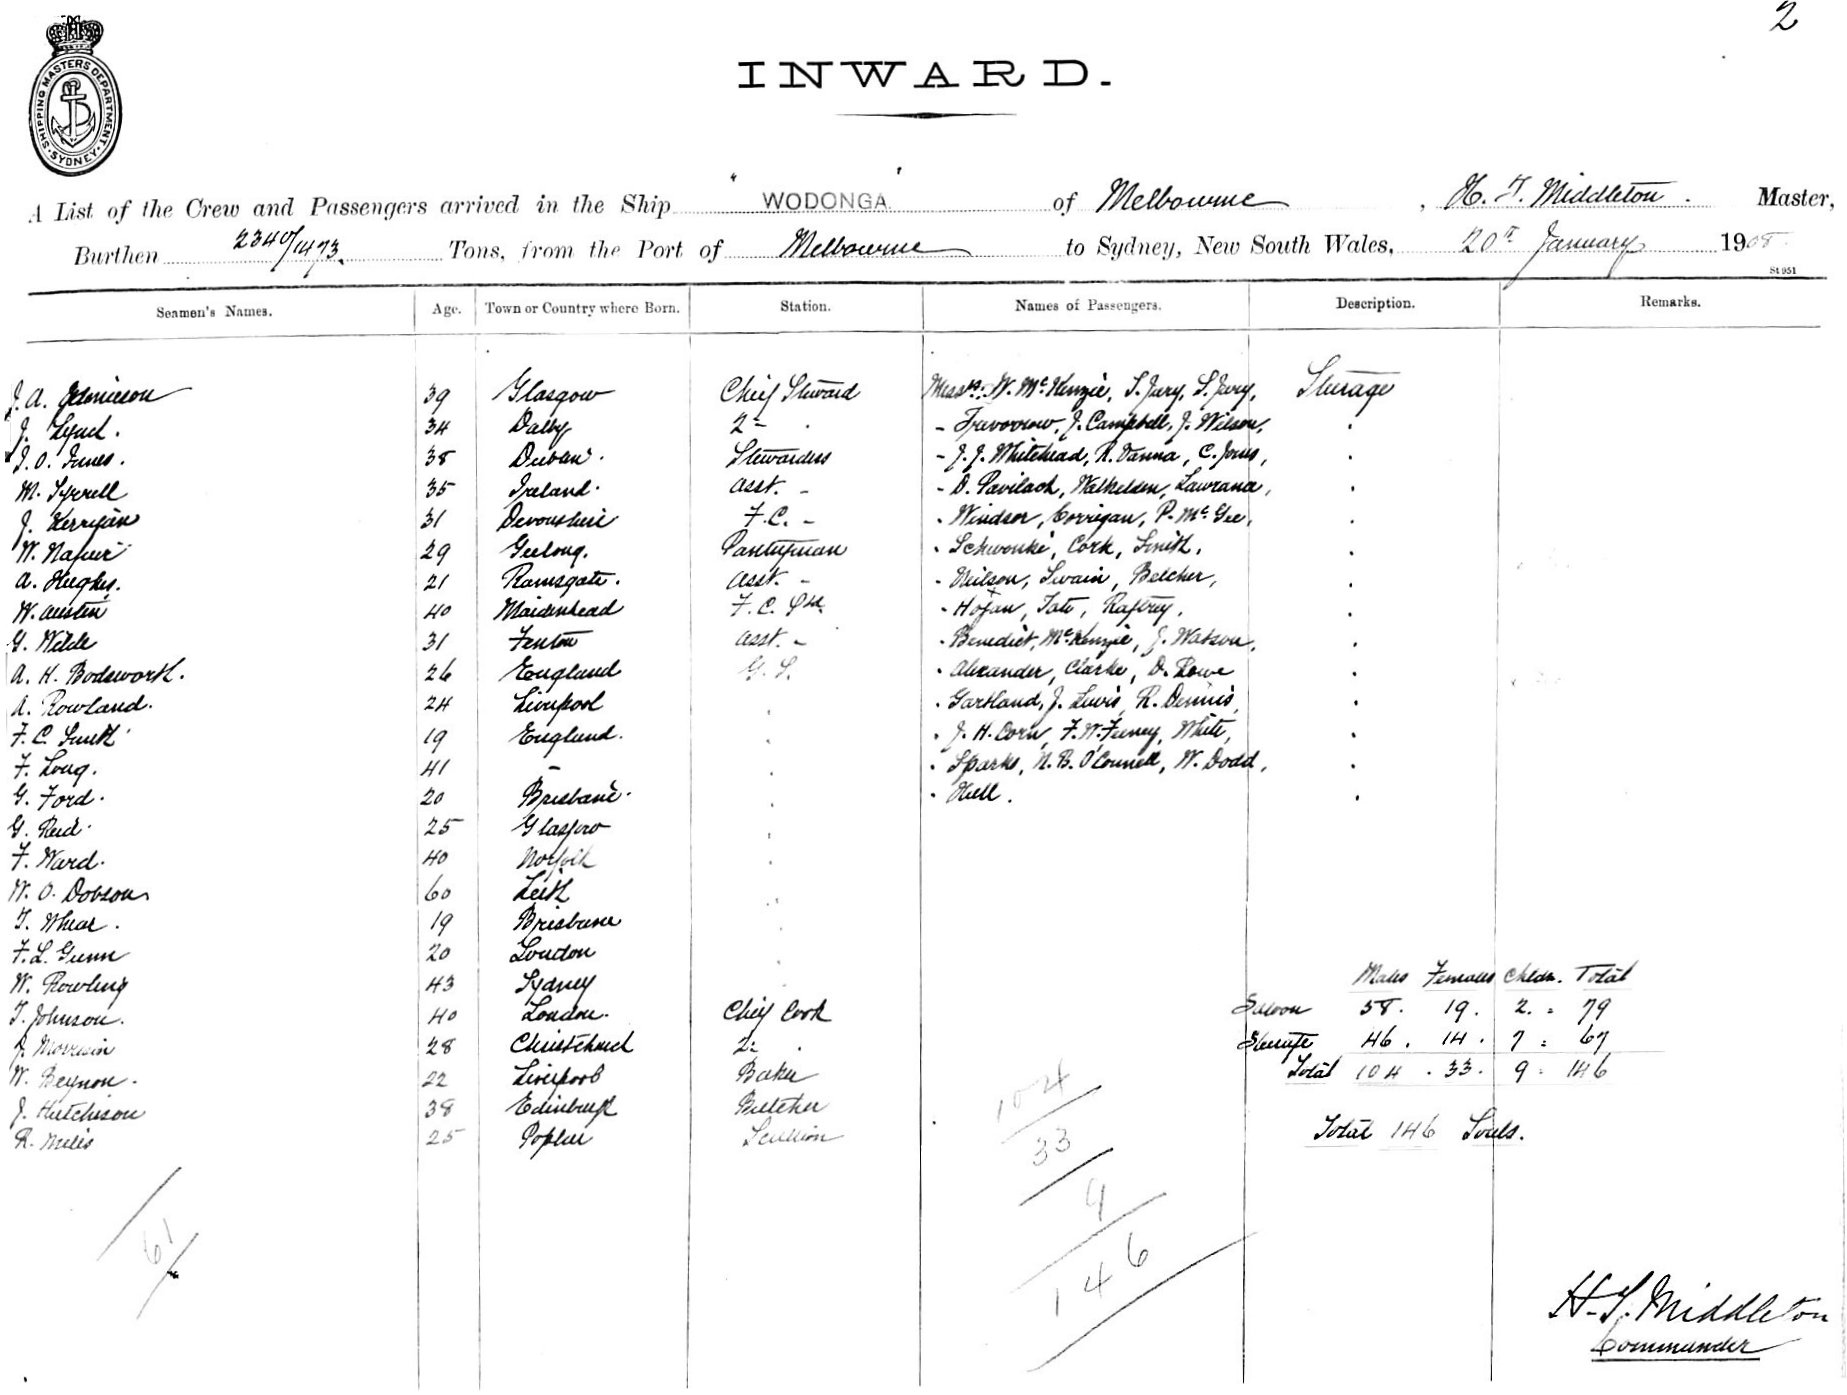 2
SHIPPING MASTERS DEPARTMENT
SYDNEY
INWARD.
A List of the Crew and Passengers arrived in the Ship "WODONGA" of Melbourne, H. T. Middleton. Master,
Burthen 2340/1473. Tons, from the Port of Melbourne to Sydney, New South Wales, 20th January 1908
St 951
Seamen's Names. Age. Town or Country where Born. Station. Names of Passengers. Description. Remarks.
J. A. Jamieson 39 Glasgow Chief Steward Messrs. W. McKenzie, T. Jury, S. Jury, Steerage
J. Lynch. 34 Dalby 2 - Trevorrow, J. Campbell, J. Wilson,
J. O. Innes. 38 Stewardess - J. J. Whitehead, R. Vanna, C. Jones,
M. Tyrrell 35 Ireland. Asst. - - D. Pavilach, Walkelden, Lawrana,
J. Kerrigan 31 Devonshire F.C. - Windsor, Corrigan, P. McGee,
W. Napier 29 Geelong. Pantryman Schwenke, Cork, Smith,
A. Hughes. 21 Ramsgate. Asst. - Neilson, Swain, Belcher,
W. Austin 40 Maidenhead F.C. Hogan, Tate, Raftrey,
G. Wilde 31 Fenton Asst. - Benedict, McKenzie, J. Watson,
A. H. Bodsworth. 26 England G.S. Alexander, Clarke, D. Rowe
A. Rowland. 24 Liverpool Gartland, J. Lewis, R. Dennis,
F. C. Smith 19 England. J. H. Corn, F. W. Feeney, White,
F. Long. 41 - Sparks, N. B. O'Connell, W. Dodd,
G. Ford. 20 Brisbane. Hill.
G. Reid. 25 Glasgow
F. Ward. 40 Norfolk
W. O. Dobson 60 Leith
T. Whear. 19 Brisbane
F. L. Gunn 20 London
W. Rowling 43 Sydney
T. Johnson. 40 London. Chief Cook
J. Morrison 28 Christchurch 2
W. Beynon. 22 Liverpool Baker
J. Hutchison 38 Edinburgh Butcher
R. Mills 25 Poplar Scullion
61
Males Females Chldn. Total
Saloon 58. 19. 2. = 79
Steerage 46. 14. 7 = 67
Total 104. 33. 9 = 146
Total 146 Souls.
104
33
9
146
H. T. Middleton
Commander